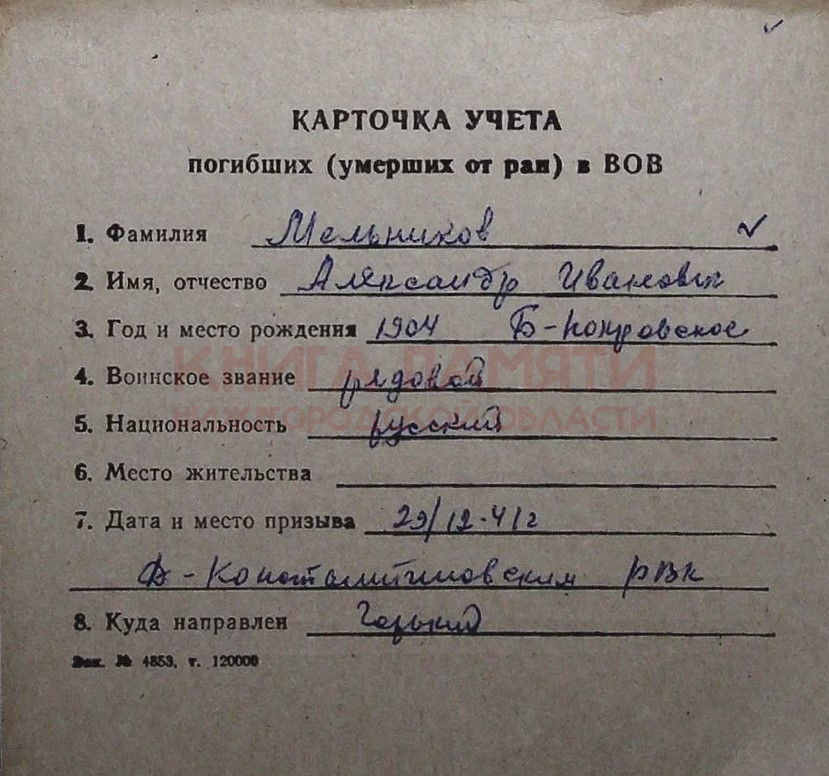 КАРТОЧКА УЧЕТА
погибших (умерших от ран) в ВОВ
1. Фамилия Мельников
2. Имя, отчество Александр Иванович
3. Год и место рождения 1904 Б-Покровское
КНИГА ПАМЯТИ
4. Воинское звание рядовой
НИЖЕГОРОДСКОЙ ОБЛАСТИ
5. Национальность русский
6. Место жительства
7. Дата и место призыва 29/12-41г
Д-Константиновским РВК
8. Куда направлен Горький
Зак. № 4853, т. 120000